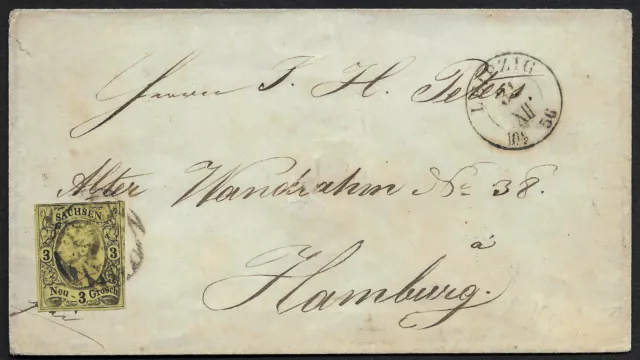 Herrn J. H. Peters
LEIPZIG
XII
10½
56
Alter Wandrahm No 38.
à
Hamburg.
SACHSEN
3 3
Neu - 3 Grosch